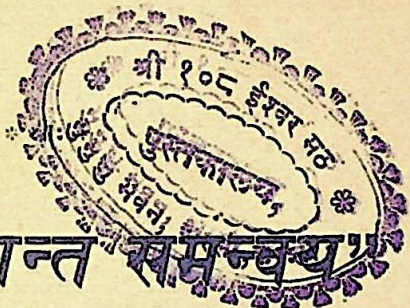 श्री १०८ ईश्वर मठ
पुस्तकालय,
भवन,
न्त समन्वय”